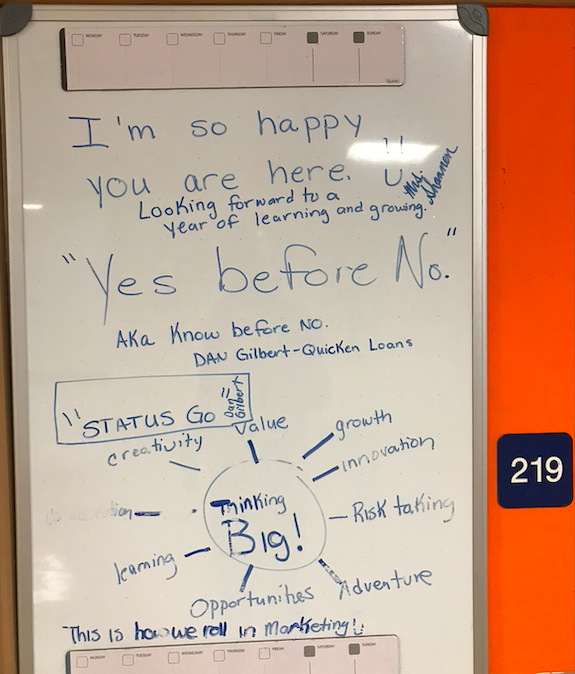 MONDAY TUESDAY WEDNESDAY THURSDAY FRIDAY SATURDAY SUNDAY
I'm so happy
you are here.
Mrs. Shannon
Looking forward to a
year of learning and growing.
"Yes before No."
AKA Know before NO.
DAN Gilbert-Quicken Loans
"STATUS GO"
Dan Gilbert
Value
creativity
growth
innovation
Thinking
BIG!
Risk taking
learning
Adventure
Opportunities
This is how we roll in Marketing!
219
MONDAY TUESDAY WEDNESDAY THURSDAY FRIDAY SATURDAY SUNDAY